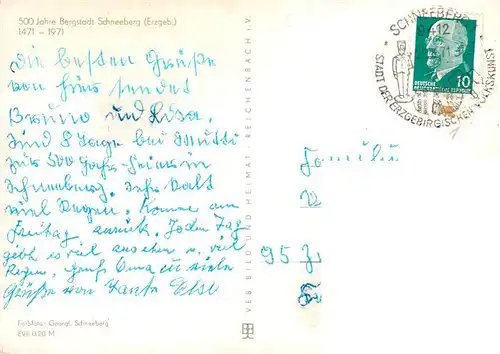 500 Jahre Bergstadt Schneeberg (Erzgeb.)
1471 – 1971
Die besten Grüße
von hier sendet
Bruno und Lisa.
Sind 8 Tage bei Mutti
zur 500 Jahr-Feier in
Schneeberg. Sehr kalt
viel Regen. Komme am
Freitag zurück. Jeden Tag
gibt es viel ansehen u. viel
Regen. Oma
Grüße von Tante Else
Farbfoto: Georgi, Schneeberg
EVP 0.20 M
VEB BILD UND HEIMAT · REICHENBACH I. V.
SCHNEEBERG
9412
STADT DER ERZGEBIRGISCHEN VOLKSKUNST
DEUTSCHE
DEMOKRATISCHE REPUBLIK
10
Familie
95